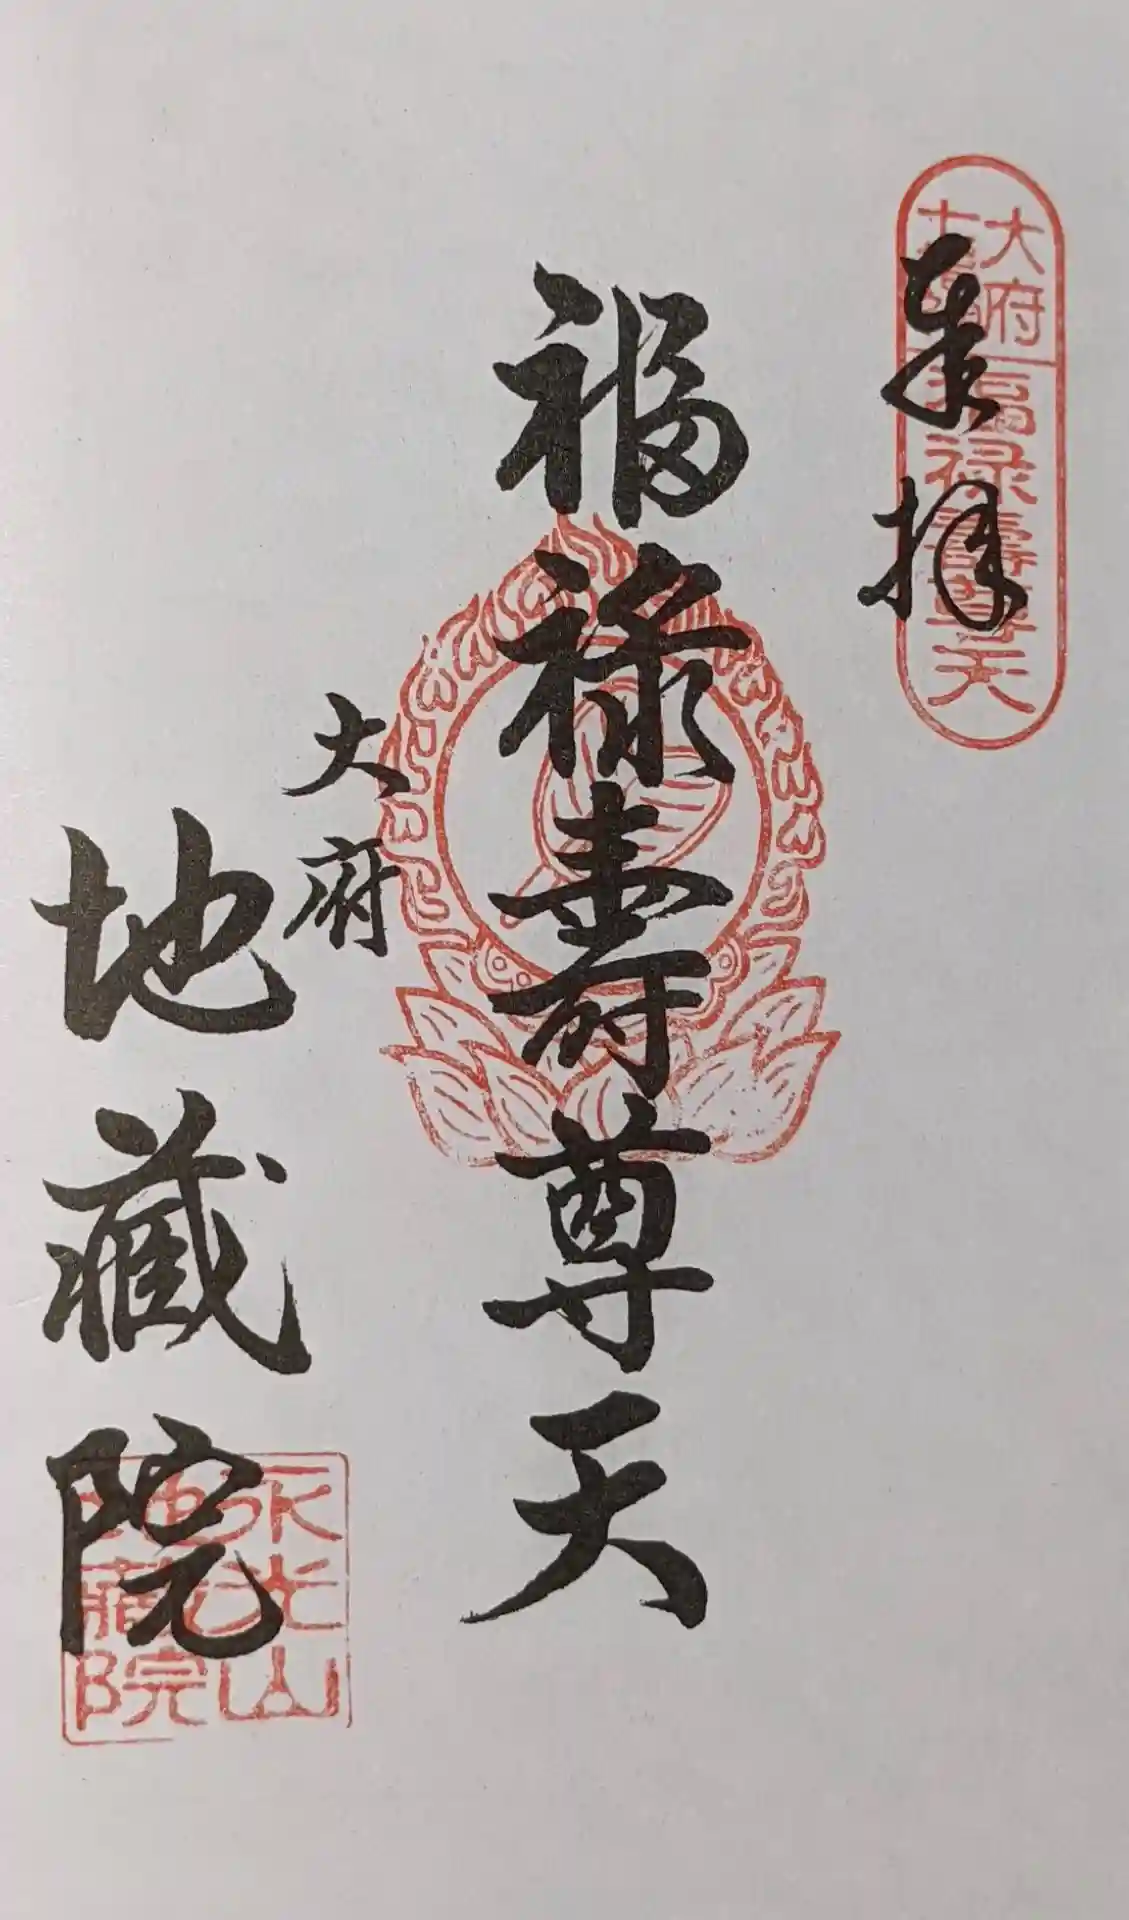 奉拝
大府
七福神
福禄壽尊天
福禄壽尊天
大府
地蔵院
永光山
地蔵院